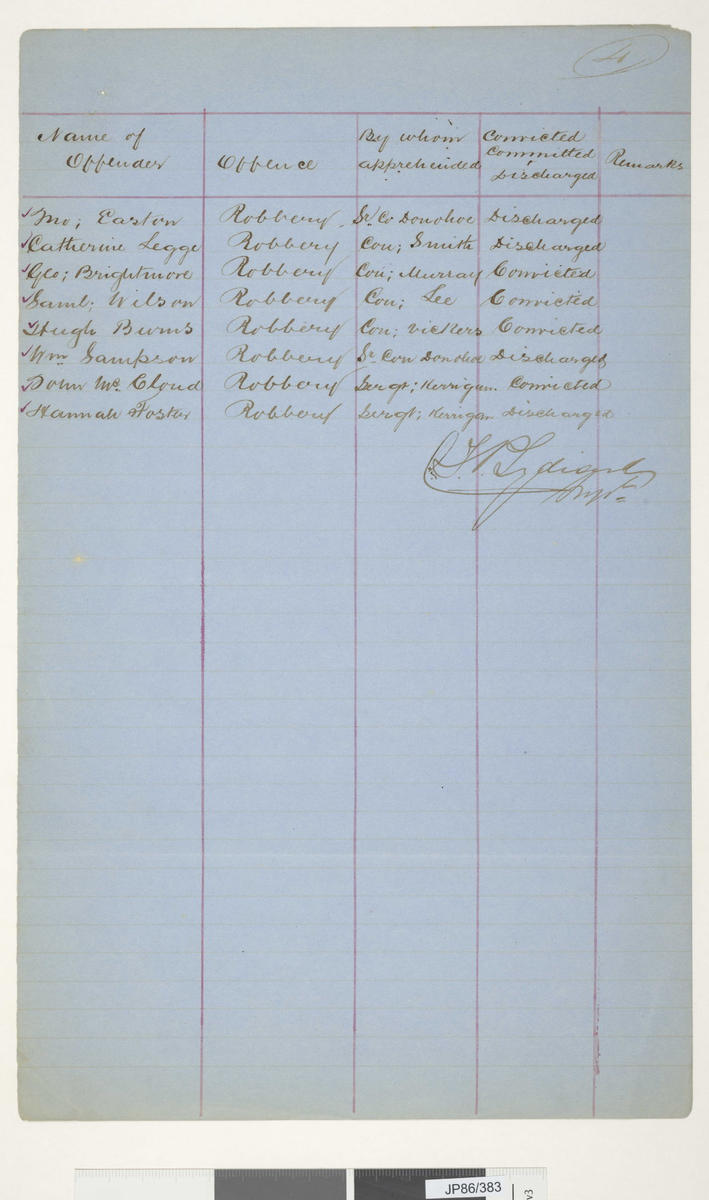 4
Name of Offender Offence By whom apprehended Convicted Committed Discharged Remarks
Jno; Easton Robbery Sr. Co Donohoe Discharged
Catherine Legge Robbery Con; Smith Discharged
Geo; Brightmore Robbery Con; Murray Convicted
Saml; Wilson Robbery Con; Lee Convicted
Hugh Burns Robbery Con; Vickers Convicted
Wm Sampson Robbery Sr. Con Donohoe Discharged
John Mc. Cloud Robbery Sergt; Kerrigan Convicted
Hannah Foster Robbery Sergt; Kerrigan Discharged
Lydiard
JP86/383
v3